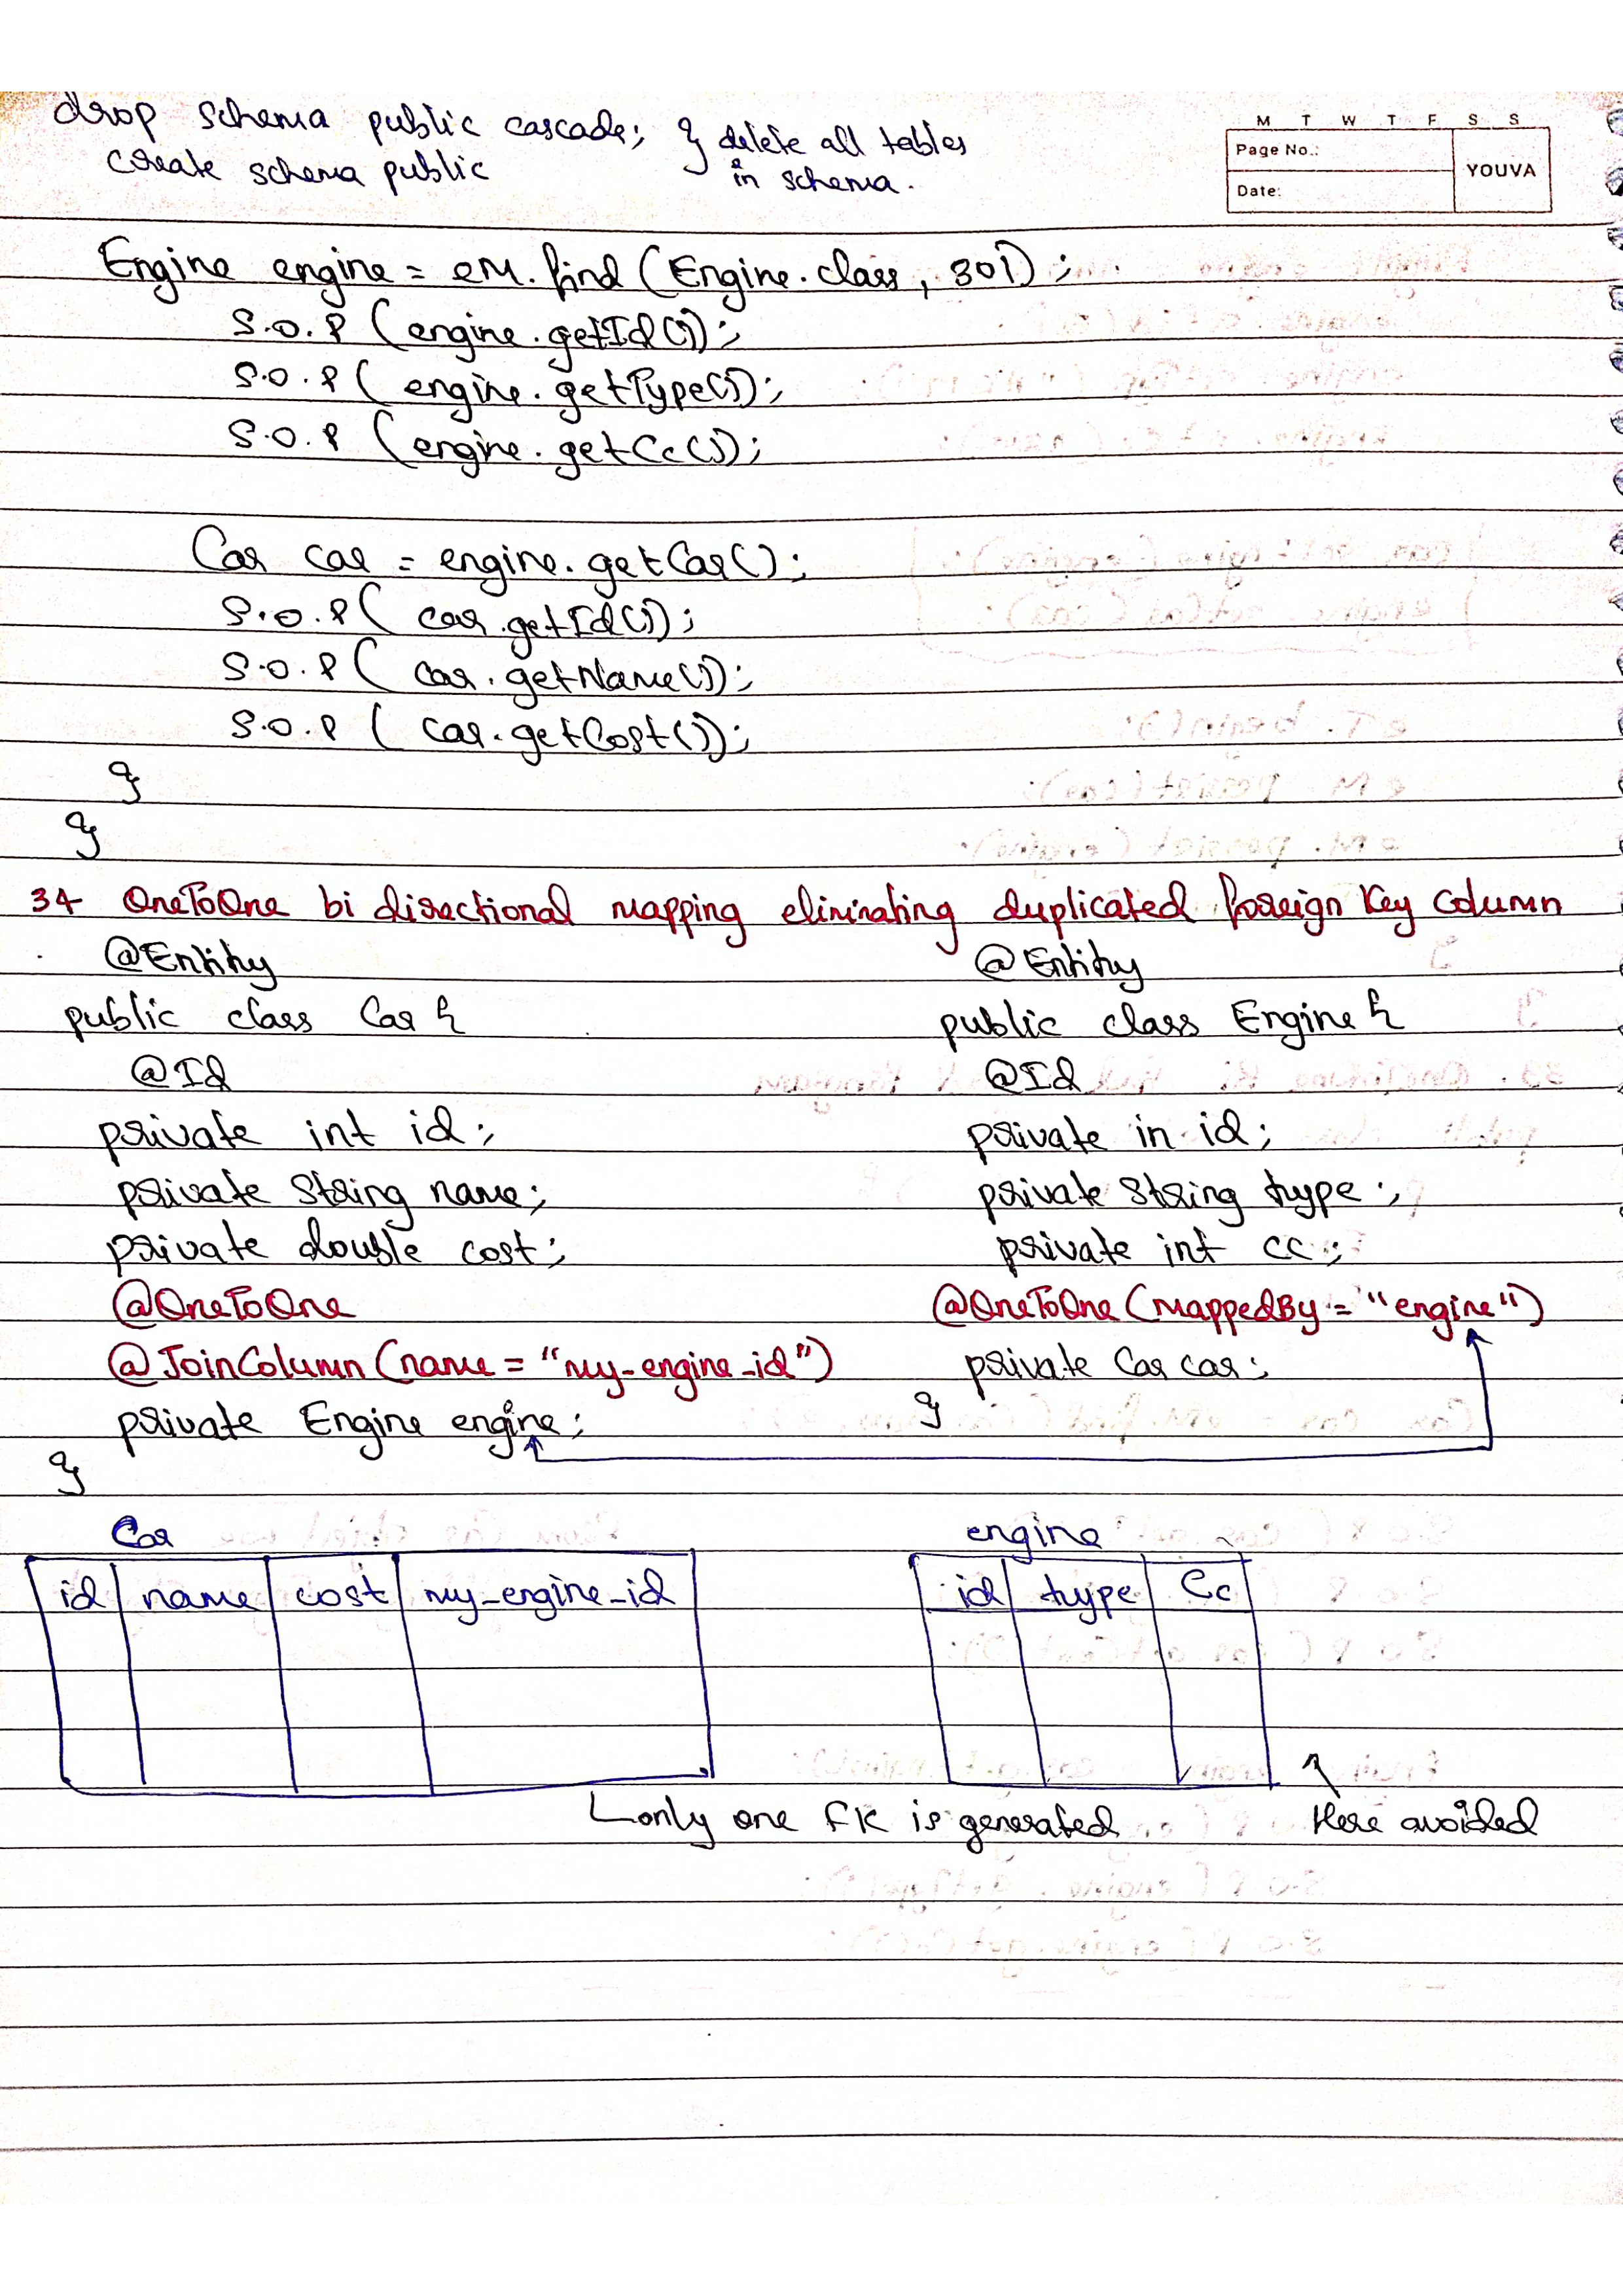 drop schema public cascade; } delete all tables
create schema public in schema.
M T W T F S S
Page No.:
YOUVA
Date:
Engine engine = eM.find (Engine.class, 301);
S.O.P (engine.getId());
S.O.P (engine.getType());
S.O.P (engine.getCc());
Car car = engine.getCar();
S.O.P( car.getId());
S.O.P( car.getName());
S.O.P ( car.getCost());
}
}
34 OneToOne bi directional mapping eliminating duplicated foreign Key Column
@Entity
public class Car {
@Id
private int id;
private String name;
private double cost;
@OneToOne
@JoinColumn (name = "my-engine-id")
private Engine engine;
}
@Entity
public class Engine {
@Id
private in id;
private String type;
private int cc;
@OneToOne (mappedBy = "engine")
private Car car;
}
Car
id name cost my-engine-id
engine
id type Cc
only one FK is generated
Here avoided